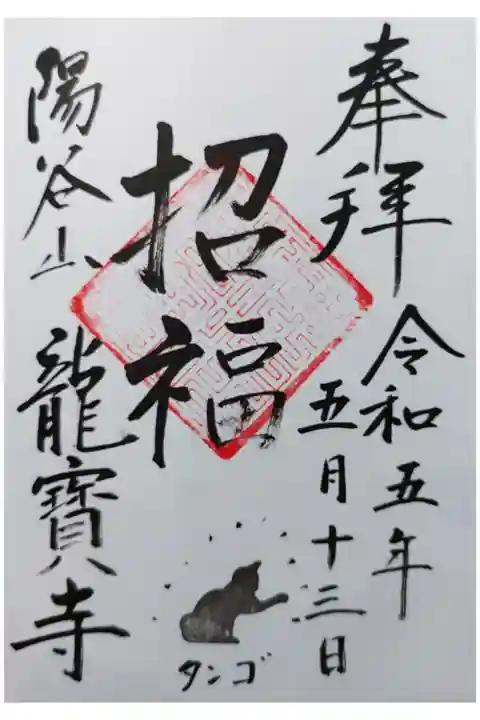 奉拝
令和五年
五月十三日
招福
タンゴ
陽谷山 龍寶寺